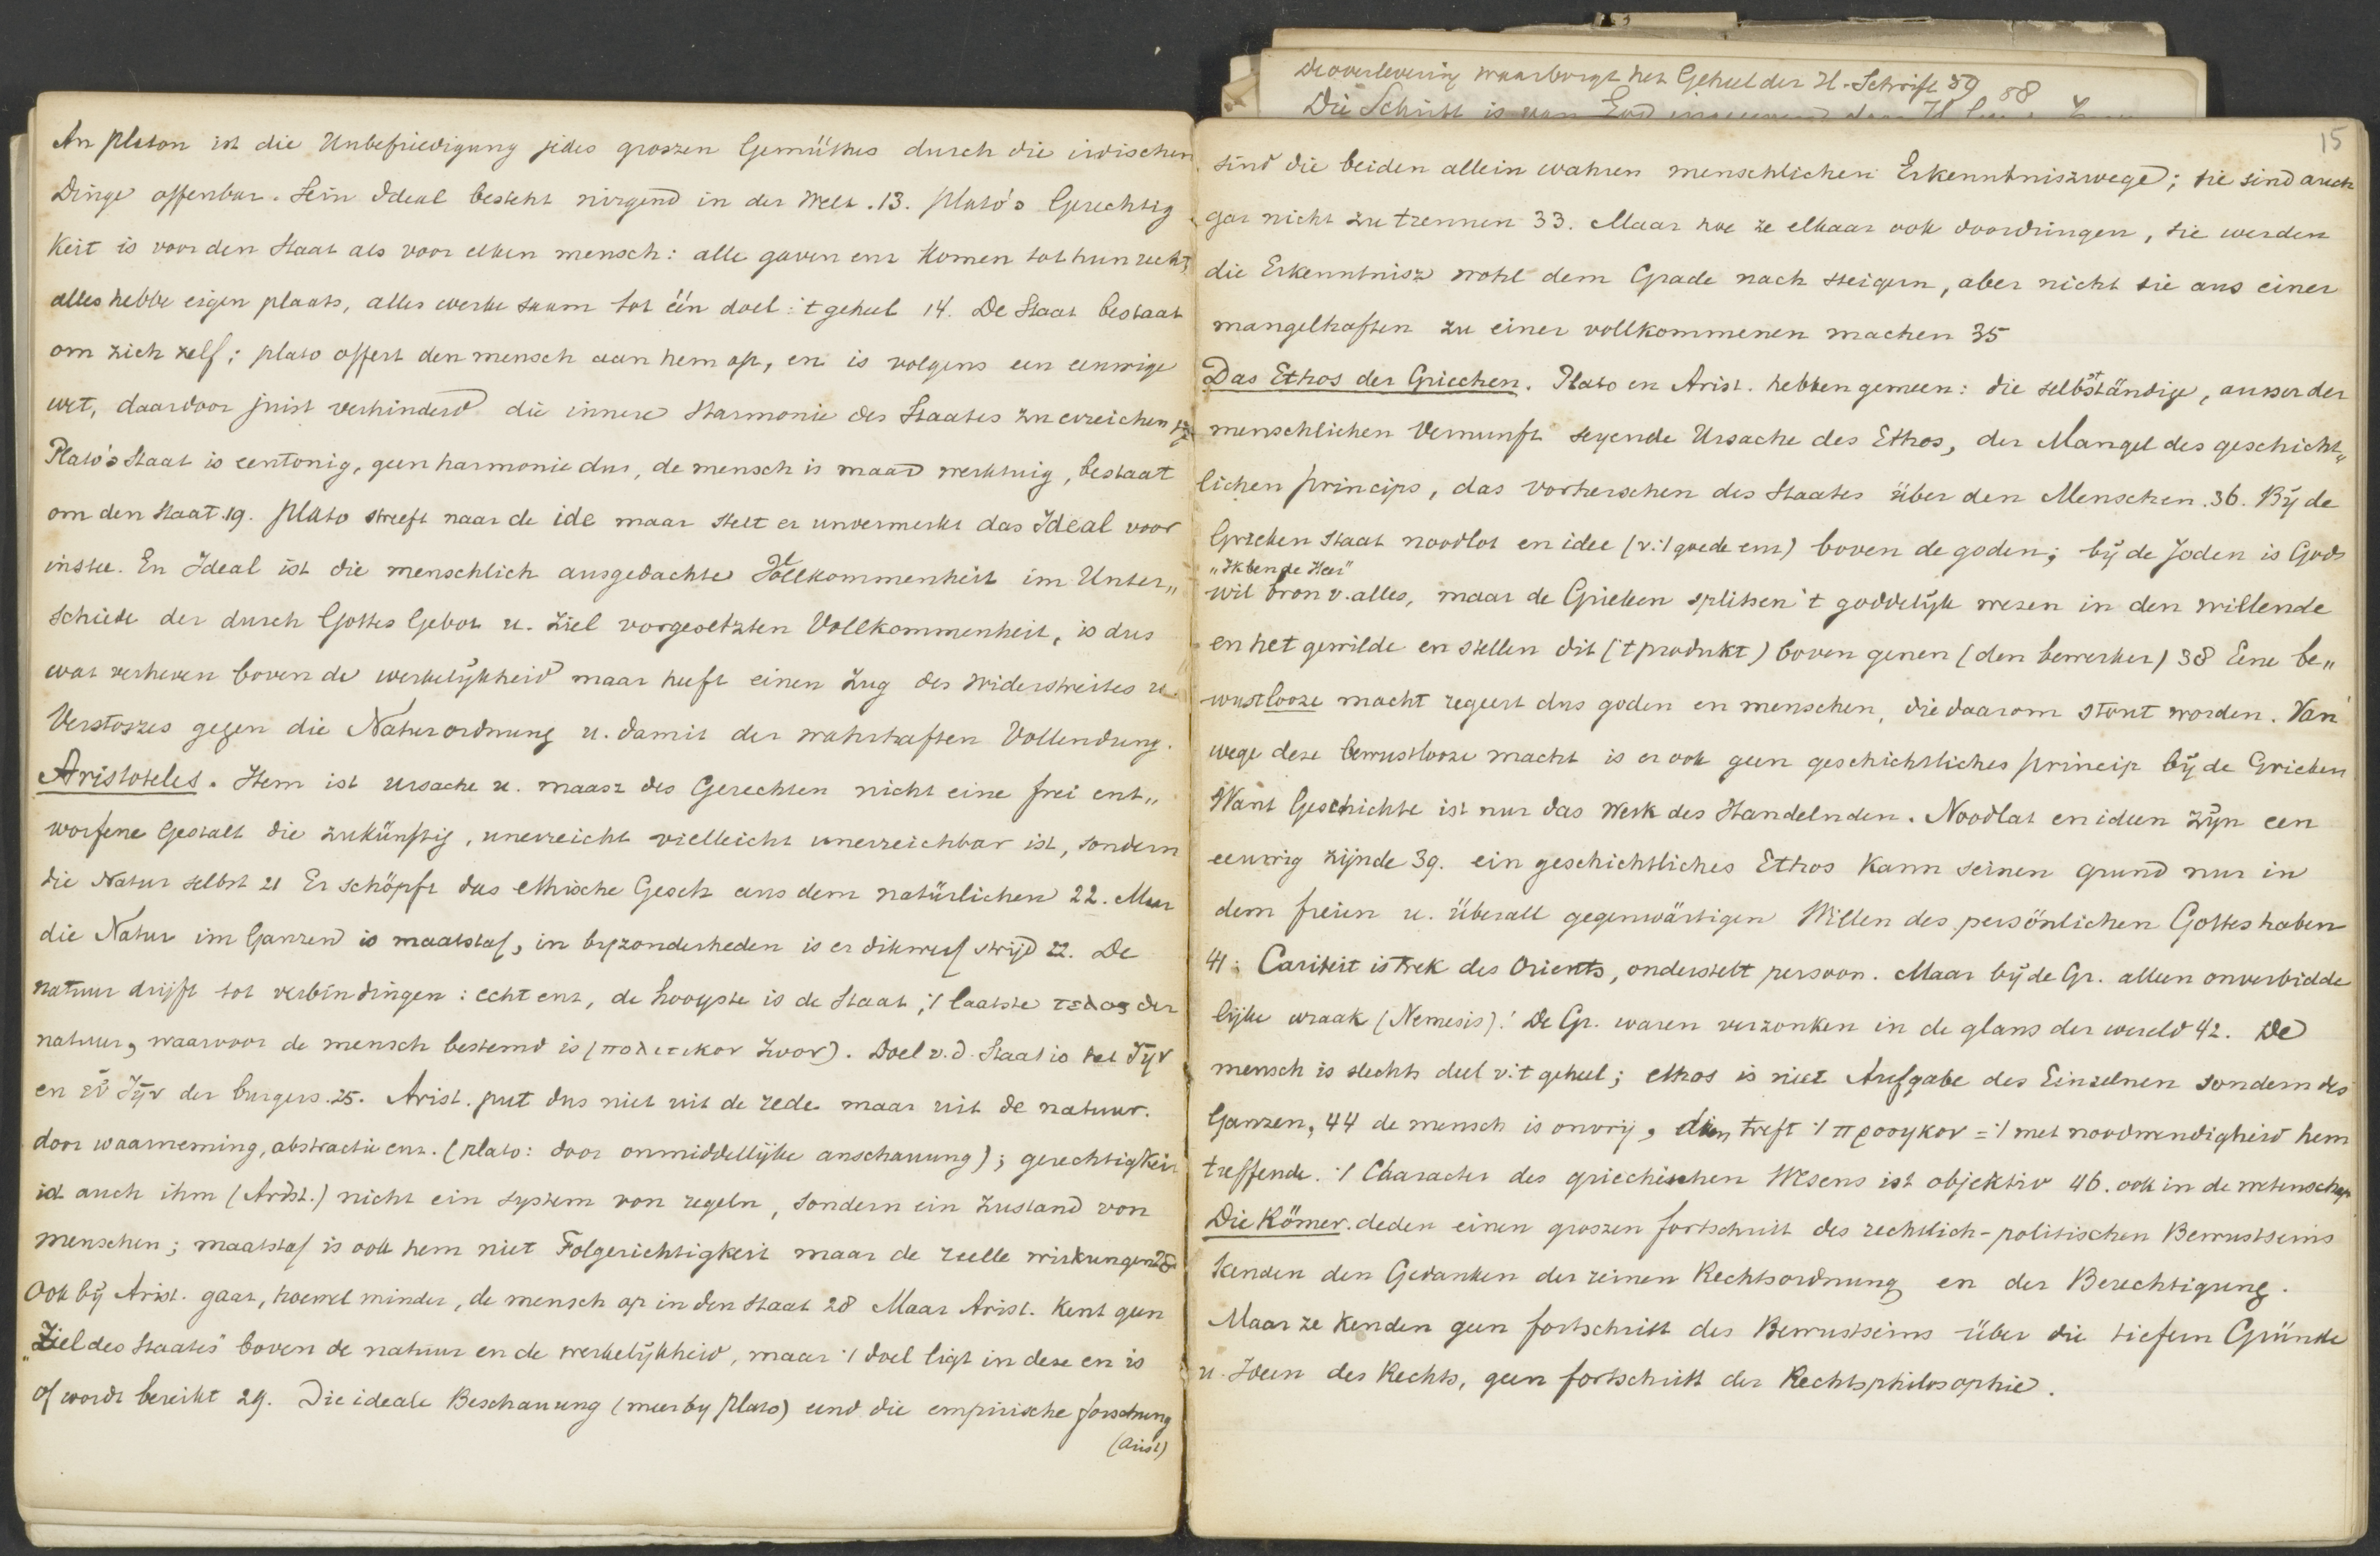 An platon ist die Unbefriedigung jedes groszen Gemüthes durch die irdischen
Dinge offenbar. Sein Ideal besteht nirgend in der Welt. 13. plato's Gerechtig
keit is voor den Staat als voor elken mensch: alle gaven enz komen tot hun recht,
alles hebbe eigen plaats, alles werke saam tot één doel: 't geheel 14. De Staat bestaat
om zich zelf; plato offert den mensch aan hem op, en is volgens een eeuwige
wet, daardoor juist verhinderd die innere Harmonie des Staates zu erreichen
Plato's Staat is eentonig, geen harmonie dus, de mensch is maar werktuig, bestaat
om den staat. 19. plato streeft naar de ide maar stelt er unvermerkt das Ideal voor
instee. En Ideal ist die menschlich ausgedachte Vollkommenheit im Unter„
schiede der durch Gottes Gebot u. Ziel vorgesetzten Vollkommenheit, is dus
wat verheven boven de werkelijkheid maar heeft einen Zug des Widerstreites u.
Verstoszes gegen die Naturordnung u. damit der wahrhaften Vollendung.
Aristoteles. Hem ist Ursache u. maasz des Gerechten nicht eine frei ent„
worfene Gestalt die zukünftig, unerreicht vielleicht unerreichbar ist, sondern
die Natur selbst 21 Er schöpft das ethische Gesetz aus dem natürlichen 22. Maar
die Natur im Ganzen is maatstaf, in byzonderheden is er dikwerf strijd 22. De
natuur drijft tot verbindingen: echt enz, de hoogste is de Staat, 't laatste τελος der
natuur, waarvoor de mensch bestemd is (πολιτικον ζωον). Doel v. d. Staat is het ζῆν
en εὖ ζῆν der burgers. 25. Arist. put dus niet uit de rede maar uit de natuur.
door waarneming, abstractie enz. (plato: door onmiddellijke anschauung); gerechtigkeit
ist auch ihm (Arist.) nicht ein system von regeln, sondern ein Zustand von
menschen; maatstaf is ook hem niet Folgerichtigkeit maar de reelle wirkungen 28
Ook bij Arist. gaat, hoewel minder, de mensch op in den staat 28 Maar Arist. kent geen
„Ziel des Staates" boven de natuur en de werkelijkheid, maar 't doel ligt in deze en is
of wordt bereikt 29. Die ideale Beschauung (meer by plato) und die empirische forschung
(Arist)
De overlevering waarborgt het Geheel der H. Schrift 59 88
15
sind die beiden allein wahren menschlichen Erkenntniszwege; sie sind auch
gar nicht zu trennen 33. Maar hoe ze elkaar ook doordringen, sie werden
die Erkenntnisz wohl dem Grade nach steigern, aber nicht sie aus einer
mangelhaften zu einer vollkommenen machen 35
Das Ethos der Griechen. Plato en Arist. hebben gemeen: die selbstständige, ausser der
menschlichen Vernunft seyende Ursache des Ethos, der Mangel des geschicht„
lichen princips, das vorherschen des Staates über den Menschen. 36. Bij de
Grieken staat noodlot en idee (v. 't goede enz) boven de goden; bij de Joden is Gods
„Ik ben de Heer"
wil bron v. alles, maar de Grieken splitsen 't goddelijk wezen in den willende
en het gewilde en stellen dit ('t produkt) boven genen (den bewerker) 38 Eene be„
wustlooze macht regeert dus goden en menschen, die daarom stout worden. Van
wege deze bewustlooze macht is er ook geen geschichtliches princip bij de Grieken
Want Geschichte ist nur das Werk des Handelnden. Noodlot en ideen zijn een
eeuwig zijnde 39. ein geschichtliches Ethos kann seinen grund nur in
dem freien u. überall gegenwärtigen Willen des persönlichen Gottes haben
41. Cariteit is trek des Orients, onderstelt persoon. Maar bij de Gr. alleen onverbidde
lijke wraak (Nemesis)! De Gr. waren verzonken in de glans der wereld 42. De
mensch is slechts deel v. 't geheel; ethos is niet Aufgabe des Einzelnen sondern des
Ganzen, 44 de mensch is onvrij, treft 't προσηκον = 't met noodwendigheid hem
treffende. 't Character des griechischen Wesens ist objektiv 46. ook in de wetenschap
Die Römer. deden einen groszen fortschritt des rechtlich-politischen Bewustseins
kenden den Gedanken der reinen Rechtsordnung en der Berechtigung.
Maar ze kenden geen fortschritt des Bewustseins über die tiefern Gründe
u. Ideen des Rechts, geen fortschritt der Rechtsphilosophie.